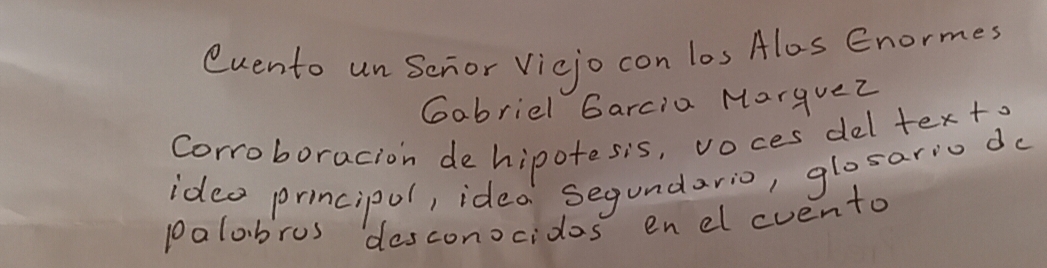 Cuento un Señor Viejo con los Alas Enormes
Gabriel Garcia Marquez
Corroboración de hipotesis, voces del texto
idea principal, idea Segundario, glosario de
palabras desconocidas en el cuento